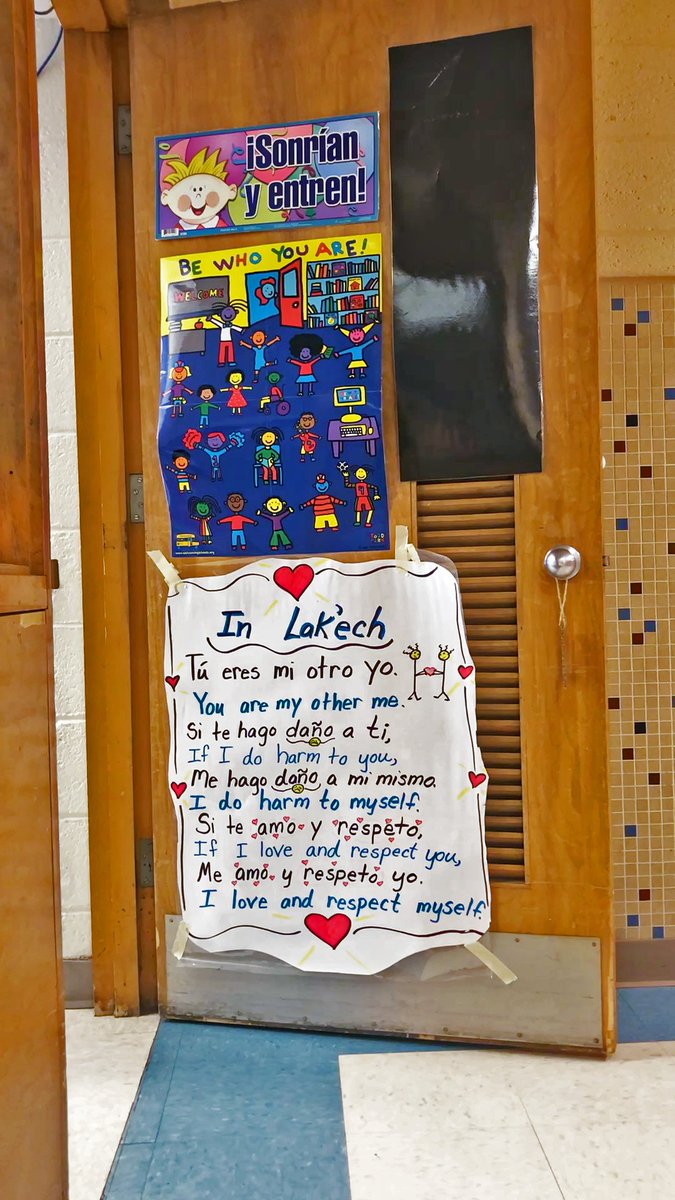 ¡Sonrían
y entren!
BE WHO YOU ARE!
WELCOME
In Lak'ech
Tú eres mi otro yo.
You are my other me.
Si te hago daño a ti,
If I do harm to you,
Me hago daño a mi mismo.
I do harm to myself.
Si te amo y respeto,
If I love and respect you,
Me amo y respeto yo.
I love and respect myself.